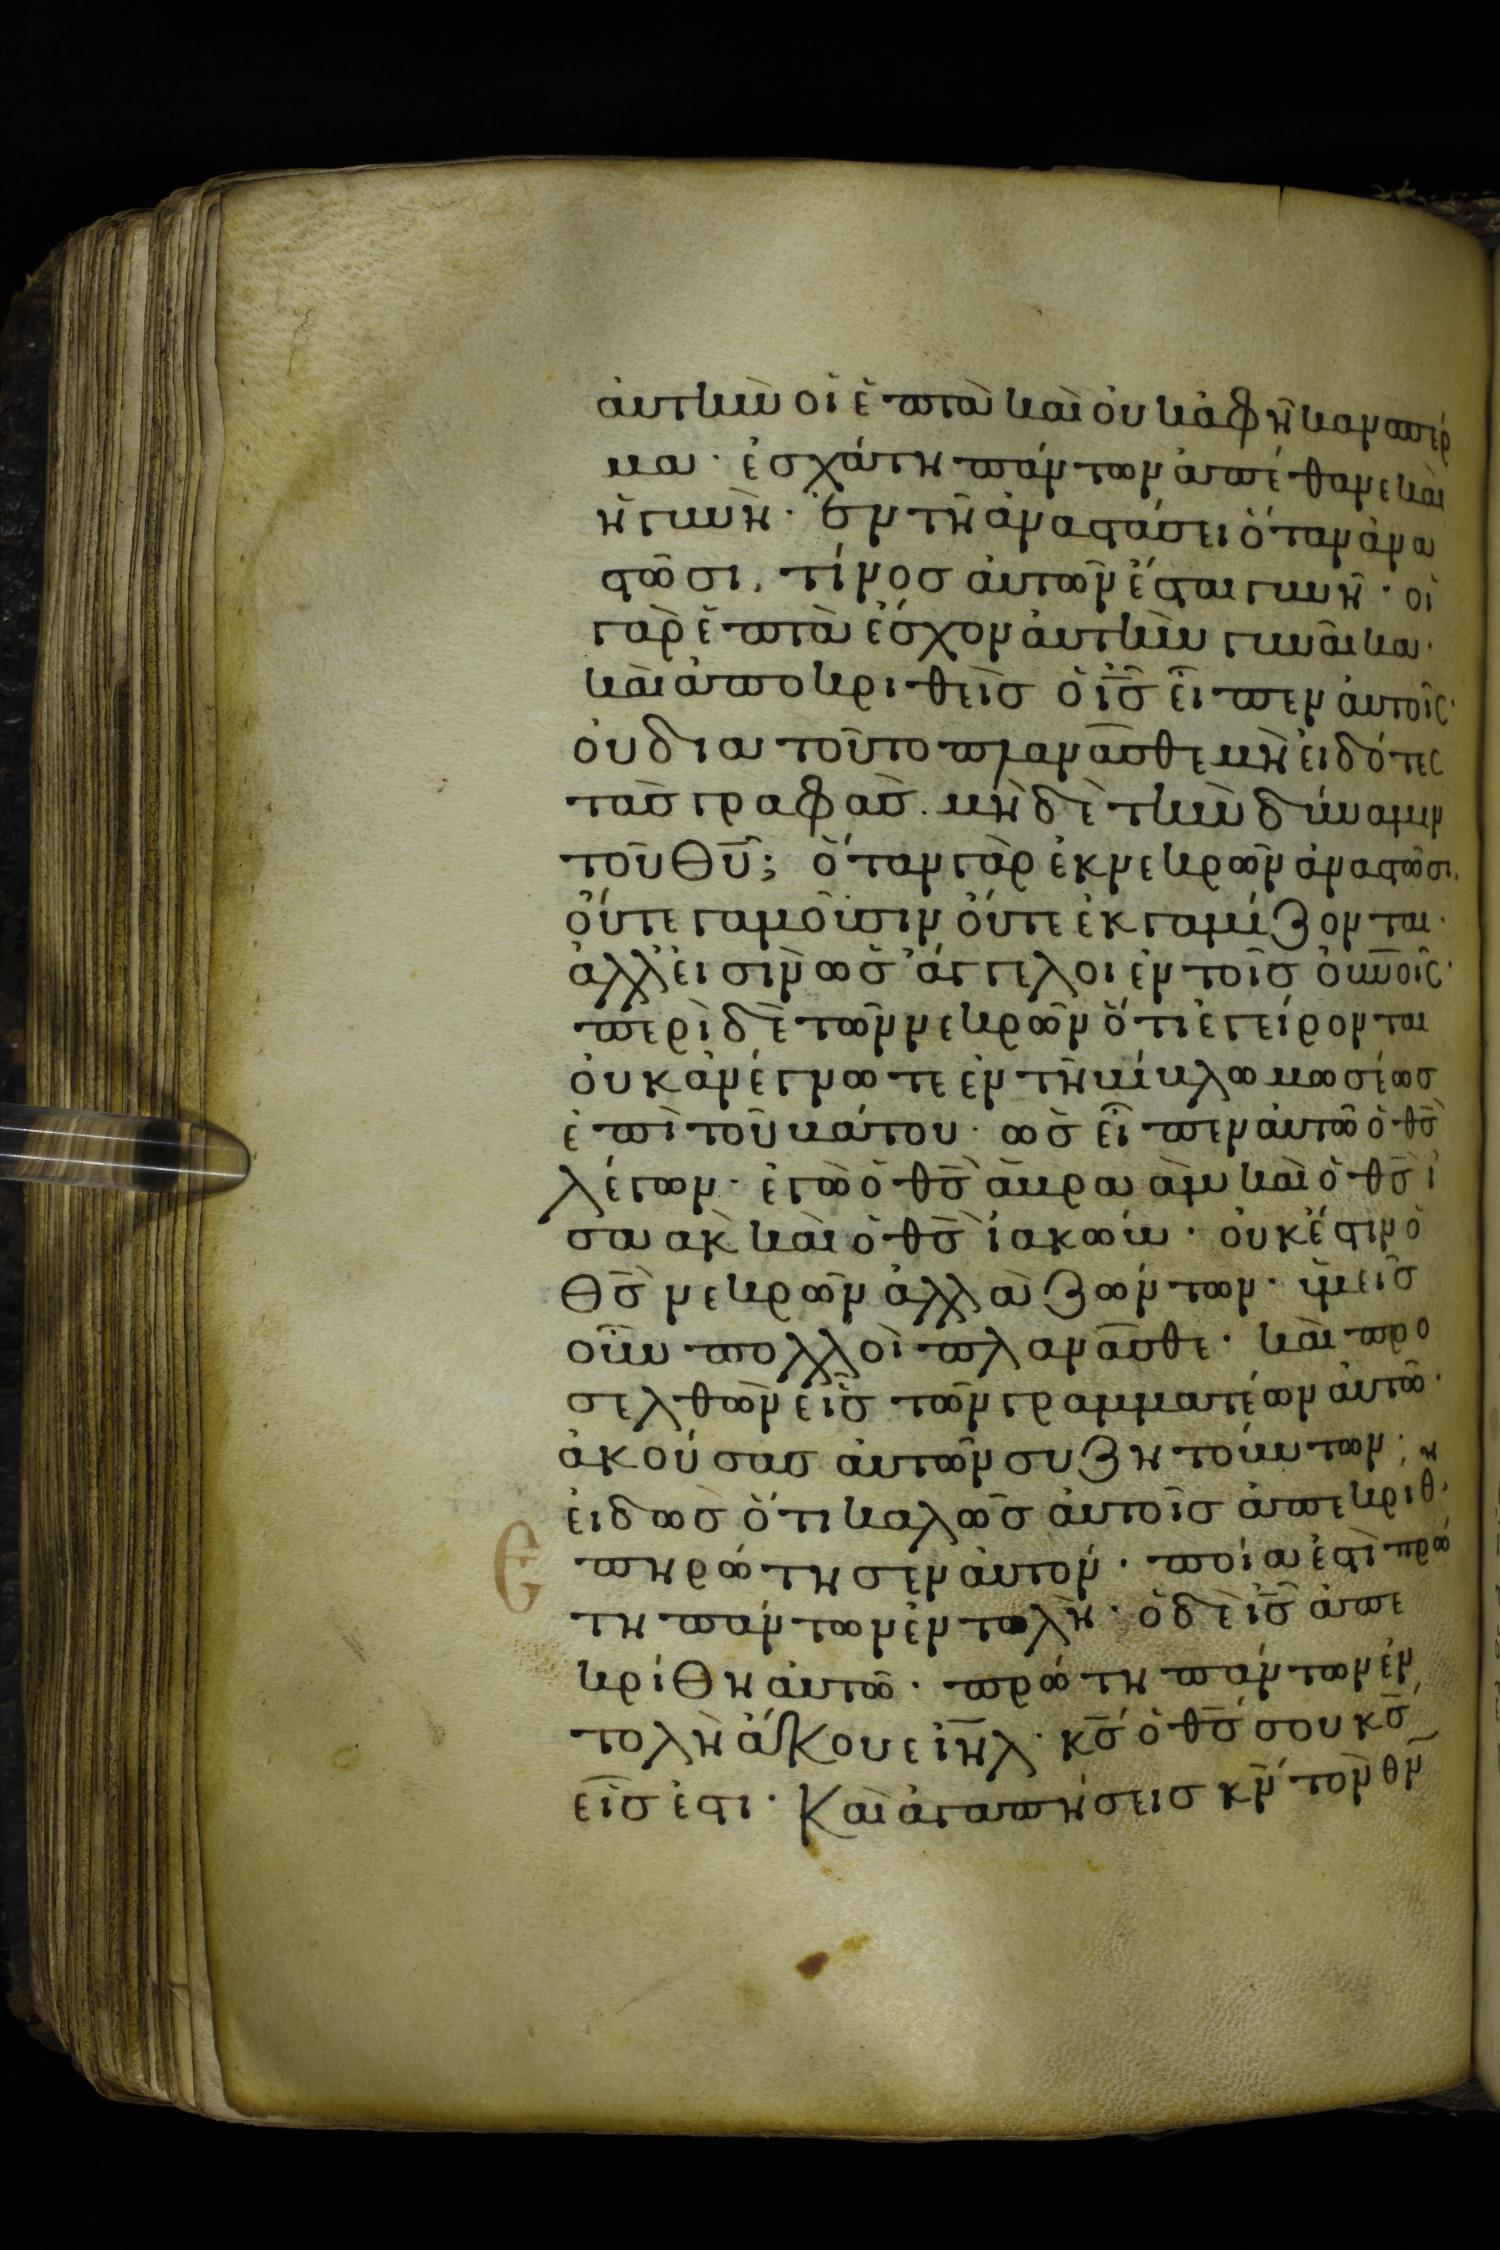 ἀυτὴν οἱ ἑπτὰ καὶ ὀυκ ἀφῆκαν σπέρ
μα · ἐσχάτη πάντων ἀπέθανε καὶ
ἡ γυνὴ · Ἐν τῆ ἀναστάσει ὅταν ἀνα
στῶσι, τίνος ἀυτῶν ἔσται γυνὴ · οἱ
γὰρ ἑπτὰ ἔσχον ἀυτὴν γυναῖκα ·
καὶ ἀποκριθεὶς ὁ ι̅ς̅ εἶπεν ἀυτοῖς ·
ὀυ δια τοῦτο πλανᾶσθε μὴ ἐιδότες
τὰς γραφὰς . μὴ δὲ τὴν δύναμιν
τοῦ Θ̅υ̅; ὅταν γὰρ ἐκ νεκρῶν ἀναστῶσι,
ὄυτε γαμοῦσιν ὄυτε ἐκγαμίζονται ·
ἀλλ᾽ ἐισὶν ὡς ἄγγελοι ἐν τοῖς ὀυ̅ν̅οῖς ·
περὶ δὲ τῶν νεκρῶν ὅτι ἐγείρονται
ὀυκ ἀνέγνωτε ἐν τῆ βίβλω μωσέως
ἐπὶ τοῦ βάτου · ὡς εἶπεν ἀυτῶ ὁ θ̅ς̅
λέγων · ἐγὼ ὁ θ̅ς̅ ἀβραὰμ καὶ ὁ θ̅ς̅ ἰ
σαὰκ καὶ ὁ θ̅ς̅ ἰακώβ · ὀυκ ἔστιν ὁ
Θ̅ς̅ νεκρῶν ἀλλὰ Ζώντων · ὑμεῖς
οὖν πολλοὶ πλανᾶσθε · καὶ προ
σελθὼν εἷς τῶν γραμματέων ἀυτῶ ·
ἀκούσας ἀυτῶν συζητούντων ·
ἐιδὼς ὅτι καλῶς ἀυτοῖς ἀπεκρίθ ·
Ἐπηρώτησεν ἀυτόν · ποία ἐστὶ πρώ
τη πάντων ἐντολὴ · ὁ δὲ ι̅ς̅ ἀπε
κρίθη ἀυτῶ · πρώτη πάντων ἐν
τολὴ ἄκουε ι̅η̅λ̅ · κ̅ς̅ ὁ θ̅ς̅ σου κ̅ς̅
εἷς ἐστι · Καὶ ἀγαπήσεις κ̅ν̅ τὸν θ̅ν̅